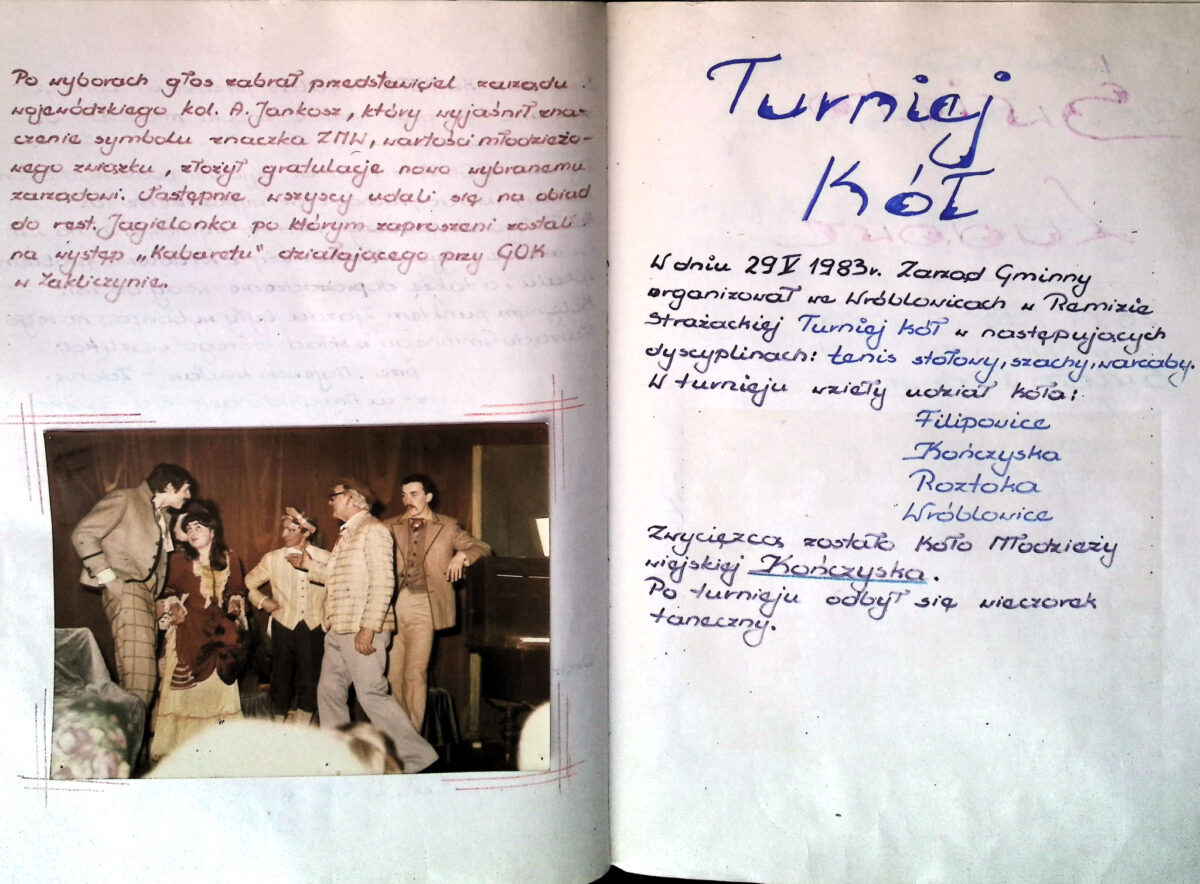 Po wyborach głos zabrał przedstawiciel zarządu
wojewódzkiego kol. A. Jankosz, który wyjaśnił zna-
czenie symbolu znaczka ZMW, wartości młodzieżo-
wego związku, złożył gratulacje nowo wybranemu
zarządowi. Następnie wszyscy udali się na obiad
do rest. Jagielonka po którym zaproszeni zostali
na występ „Kabaretu" działającego przy GOK
w Zakliczynie.
Turniej
Kół
W dniu 29 V 1983r. Zarząd Gminny
organizował we Wróblowicach w Remizie
Strażackiej Turniej Kół w następujących
dyscyplinach: tenis stołowy, szachy, warcaby.
W turnieju wzieły udział koła:
Filipowice
Kończyska
Roztoka
Wróblowice
Zwycięzcą zostało Koło Młodzieży
wiejskiej Kończyska.
Po turnieju odbył się wieczorek
taneczny.